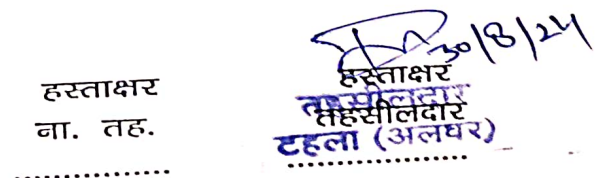 30/8/24
हस्ताक्षर हस्ताक्षर
तहसीलदार
ना. तह. तहसीलदार
टहला (अलवर)